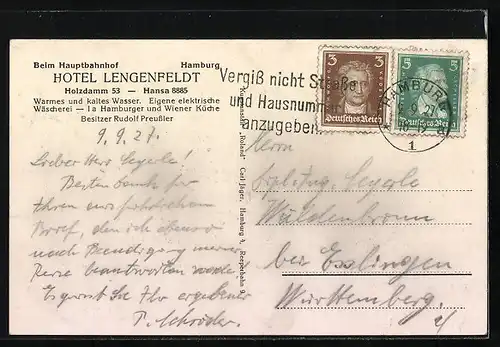 Beim Hauptbahnhof Hamburg
HOTEL LENGENFELDT
Holzdamm 53 — Hansa 8885
Warmes und kaltes Wasser. Eigene elektrische
Wäscherei — 1a Hamburger und Wiener Küche
Besitzer Rudolf Preußler
9.9.27.
Lieber Herr Segerle!
Besten Dank für
Ihren ausführlichen
Brief, den ich ebenso
nach Beendigung meiner
Reise beantworten werde
Es grüsst Sie Ihr ergebener
P. Schröder.
Kunstanstalt „Roland" Carl Jäger, Hamburg 4, Reeperbahn 9
Vergiß nicht Straße
und Hausnum
anzugeben
3 3
Deutsches Reich
5 5
Deutsches Reich
HAMBURG
1
Herrn
Dipl. Ing. Segerle
Wäldenbronn
bei Esslingen
Württemberg.